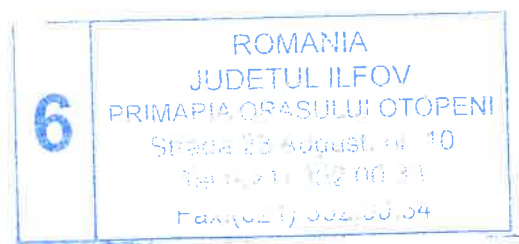 6
ROMANIA
JUDETUL ILFOV
PRIMARIA ORASULUI OTOPENI
Strada 23 August, nr. 10
Tel
Fax:(021)